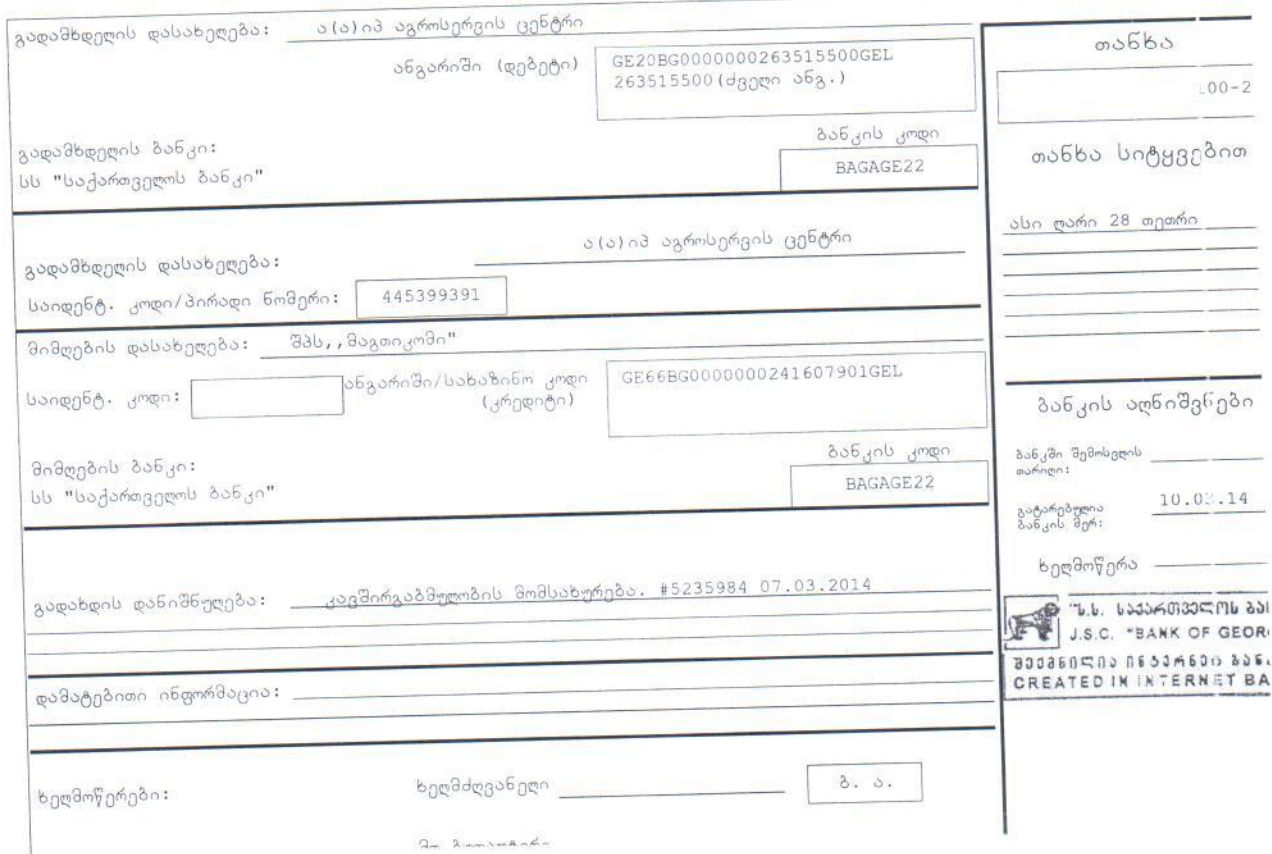 გადამხდელის დასახელება: ა(ა)იპ აგროსერვის ცენტრი
ანგარიში (დებეტი) GE20BG0000000263515500GEL
263515500(ძველი ანგ.)
გადამხდელის ბანკი:
სს "საქართველოს ბანკი"
ბანკის კოდი
BAGAGE22
ა(ა)იპ აგროსერვის ცენტრი
გადამხდელის დასახელება:
საიდენტ. კოდი/პირადი ნომერი: 445399391
მიმღების დასახელება: შპს,,მაგთიკომი"
საიდენტ. კოდი:
ანგარიში/სახაზინო კოდი
(კრედიტი)
GE66BG0000000241607901GEL
მიმღების ბანკი:
სს "საქართველოს ბანკი"
ბანკის კოდი
BAGAGE22
გადახდის დანიშნულება: კავშირგაბმულობის მომსახურება. #5235984 07.03.2014
დამატებითი ინფორმაცია:
ხელმოწერები:
ხელმძღვანელი
ბ. ა.
თანხა
00-2
თანხა სიტყვებით
ასი ლარი 28 თეთრი
ბანკის აღნიშვნები
ბანკში შემოსვლის
თარიღი:
გატარებულია
ბანკის მერ:
ხელმოწერა
"ს.ს. საქართველოს ბან
J.S.C. "BANK OF GEOR
შექმნილია ინტერნეტ ბან
CREATED IN INTERNET BA